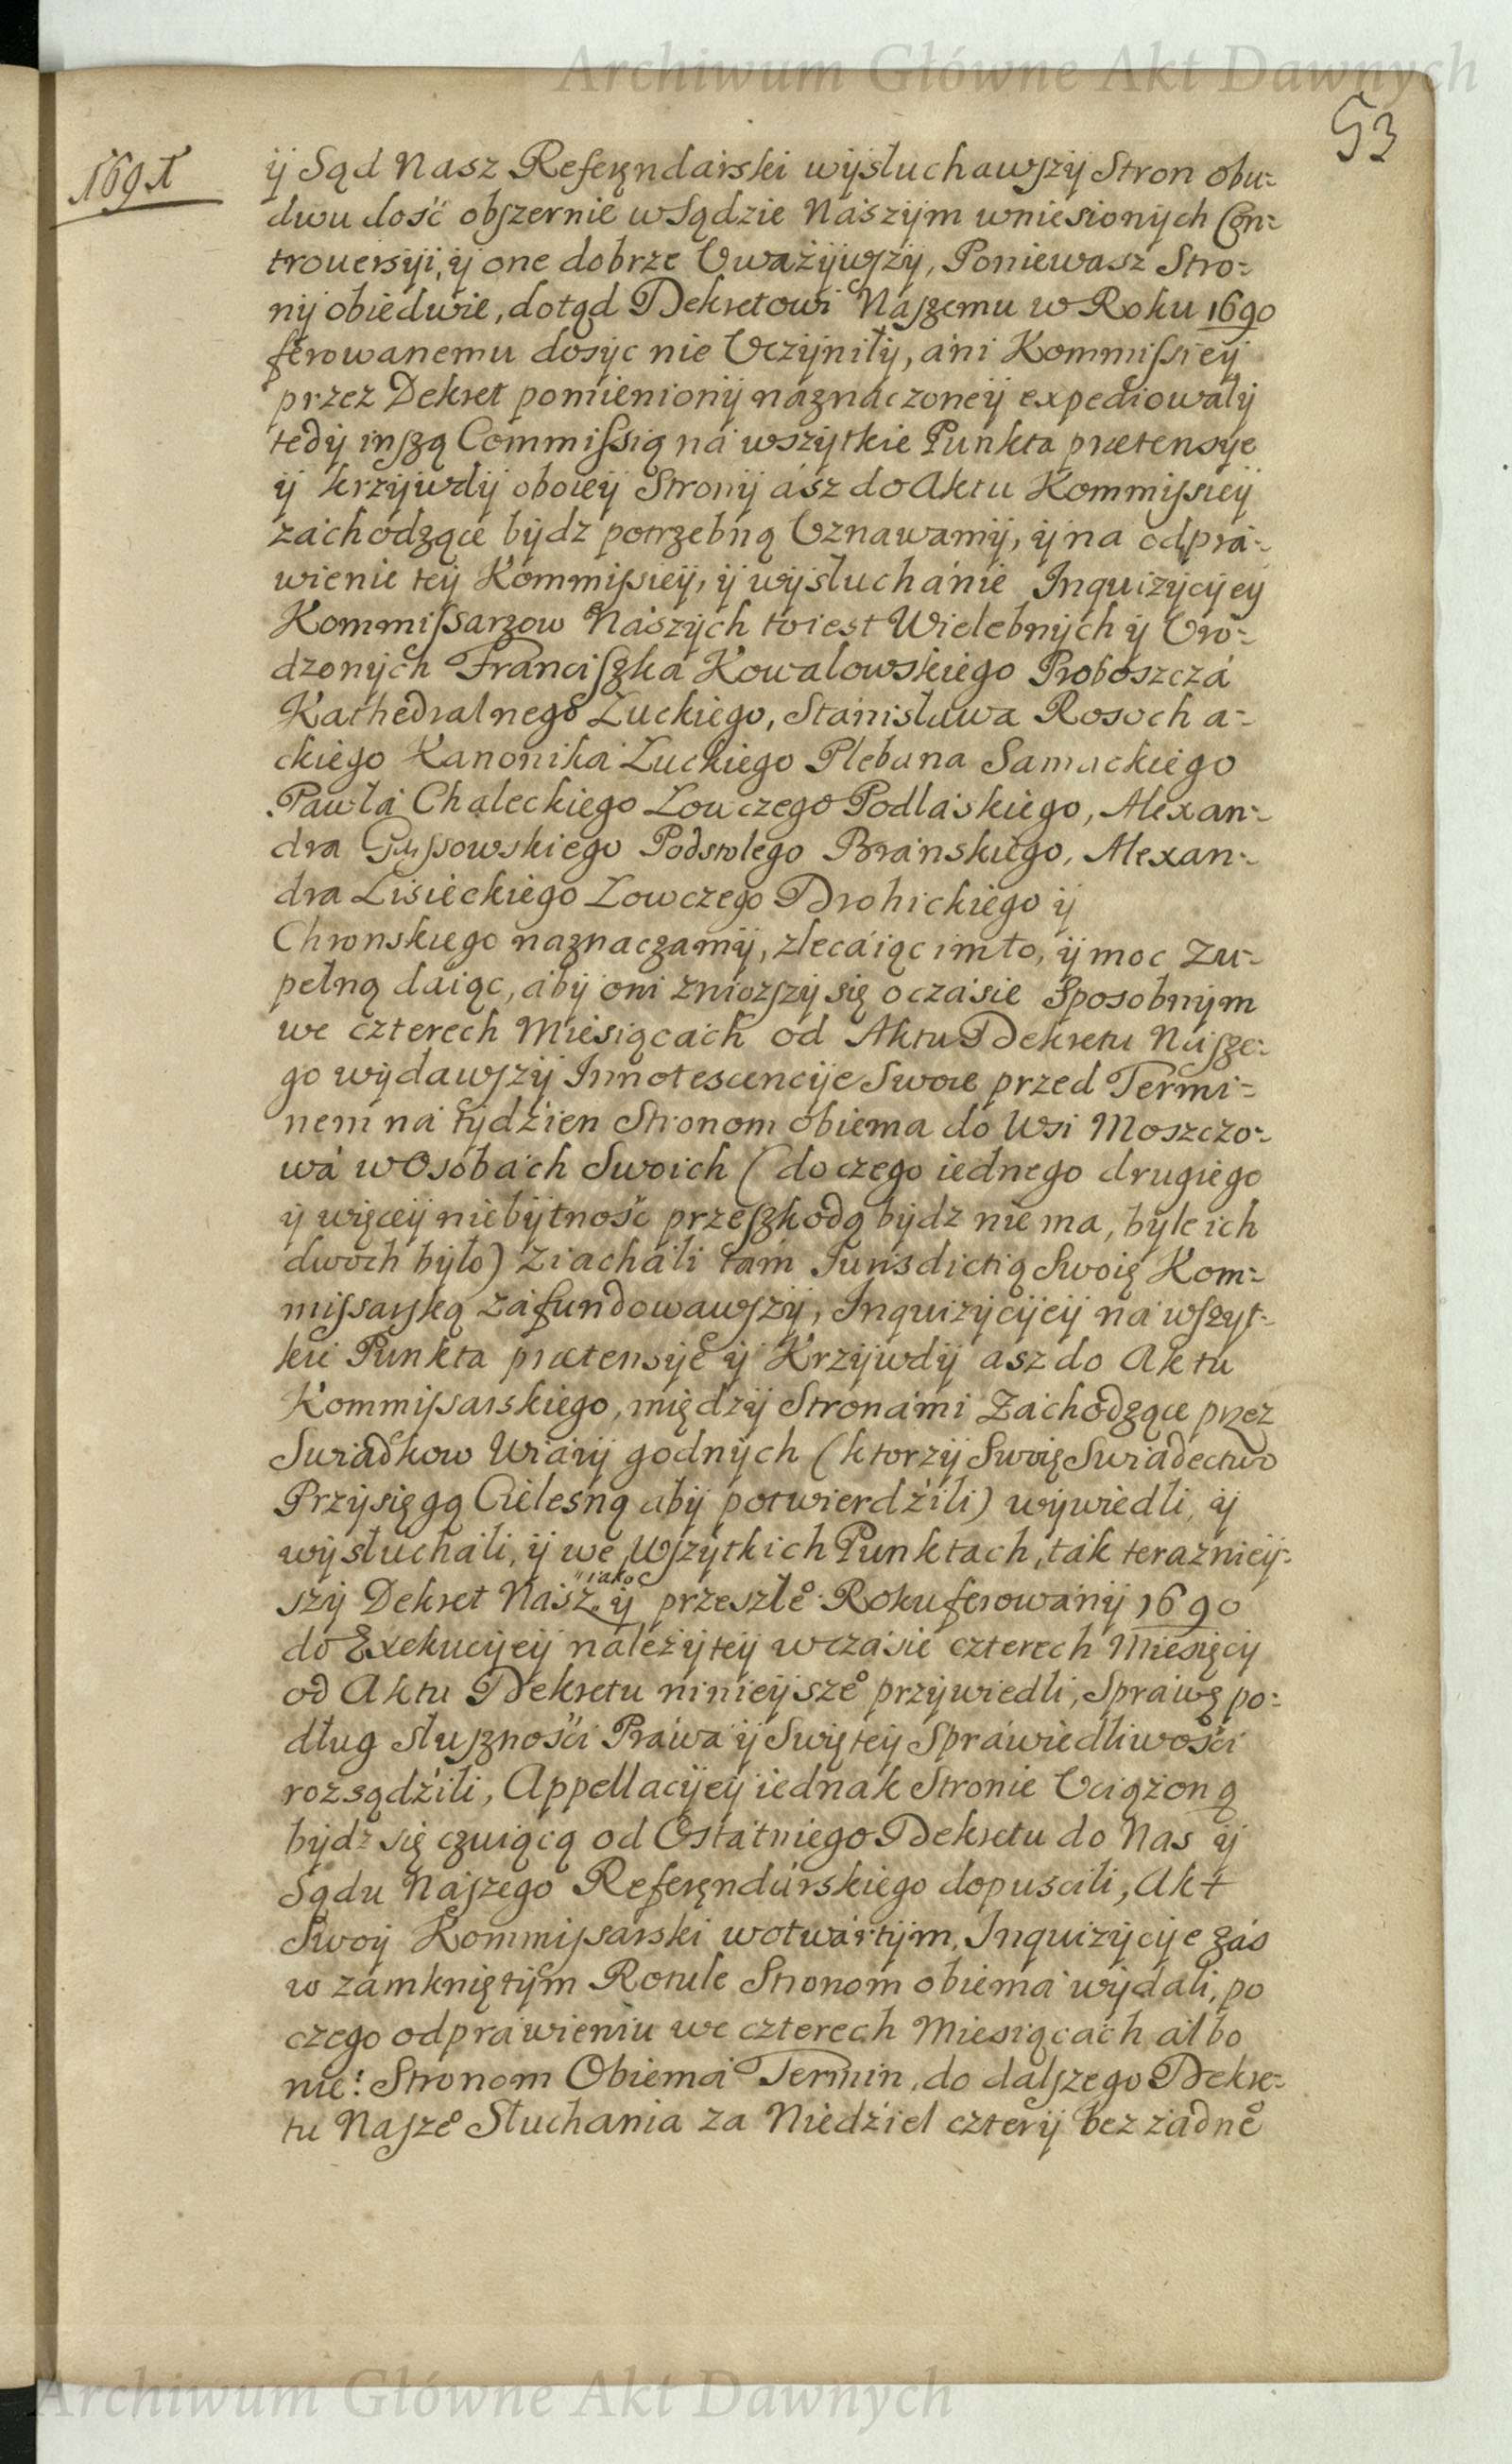 Archiwum Główne Akt Dawnych
53
1691
ÿ Sąd Nasz Referęndarski wÿsłuchawszÿ Stron obu=
dwu dość obszernie w Sądzie Naszÿm wniesionÿch Con=
trouersÿi, ÿ one dobrze Vważÿwszÿ, Poniewasz Stro=
nÿ obiedwie, dotąd Dekretowi Naszemu w Roku 1690
ferowanemu dosÿc nie Vczÿniłÿ, ani Kommissieÿ
przez Dekret pomienionÿ náznaczoneÿ expediowałÿ
tedÿ inszą Commissią ná wszÿtkie Punkta prætensÿe
ÿ krzÿwdÿ oboieÿ Stronÿ ász do Aktu Kommissieÿ
záchodzące bÿdz potrzebną Vznawamÿ, ÿ na odprá=
wienie teÿ Kommissieÿ, ÿ wÿsłuchánie Inquizÿcÿeÿ
Kommissarzow Nászÿch to iest Wielebnÿch ÿ Vro=
dzonÿch Franciszka Kowalowskiego Proboszczá
Kathedralnego Łuckiego, Stánisława Rosocha=
ckiego Kanonika Łuckiego Plebana Sarnackiego
Pawłá Chaleckiego Łowczego Podláskiego, Alexan=
dra Podstolego Bránskiego, Alexan=
dra Lisieckiego Łowczego Drohickiego ÿ
Chronskiego naznaczamÿ, zlecáiąc im to, ÿ moc Zu=
pełną daiąc, abÿ oni zniozszÿ się o czásie Sposobnÿm
we czterech Miesiącách od Aktu Dekretu Nasze=
go wÿdawszÿ Innotescencÿe Swoie przed Termi=
nem ná tÿdzien Stronom obiema do Wsi Moszczo=
wá w Osobách Swoich (do czego iednego drugiego
ÿ więceÿ niebÿtność przeszkodą bÿdz nie ma, bÿle ich
dwoch bÿło) Ziacháli tám Iurisdictią Swoię Kom=
missarską záfundowawszÿ, Inquizÿcÿeÿ ná wszÿt=
kie Punkta prætensÿe ÿ Krzÿwdÿ asz do Aktu
Kommissarskiego, międzÿ Stronámi Záchodzące przez
Swiadkow Wiárÿ godnÿch (ktorzÿ Swoię Swiadectwo
Przÿsięgą Cielesną abÿ potwierdźili) wÿwiedli, ÿ
wÿsłucháli, ÿ we Wszÿtkich Punktach, tak teraznieÿ=
szÿ Dekret Nász iako ÿ przeszłe° Roku ferowanÿ 1690
do Exekucÿeÿ náleżÿteÿ w czásie czterech Miesięcÿ
od Aktu Dekretu ninieÿsze° przÿwiedli, Spráwę po=
dług słusznośći Práwa ÿ Swięteÿ Spráwiedliwośći
rozsądźili, Appellacÿeÿ iednak Stronie Vciążoną
bÿdz się czuiącą od Ostátniego Dekretu do Nas ÿ
Sądu Naszego Referęndárskiego dopuscili, Akt
Swoÿ Kommissárski w otwártÿm, Inquizÿcÿe zás
w zámkniętÿm Rotule Stronom obiemá wÿdali, po
czego odpráwieniu we czterech Miesiącách álbo
nie: Stronom Obiemá Termin, do dalszego Dekre=
tu Nasze° Słuchania za Niedźiel czterÿ bez żadne°
Archiwum Główne Akt Dawnych